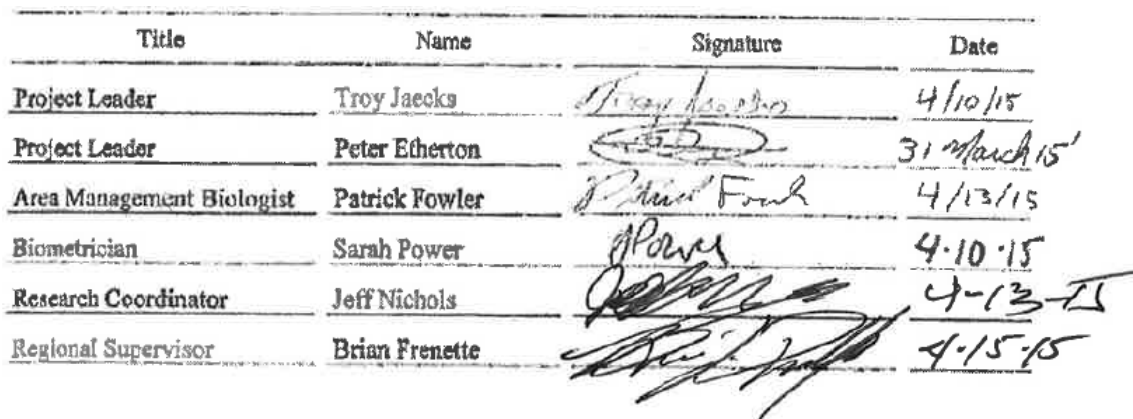 Title Name Signature Date
Project Leader Troy Jaecks Troy Jaecks 4/10/15
Project Leader Peter Etherton 31 March 15'
Area Management Biologist Patrick Fowler Patrick Fowler 4/13/15
Biometrician Sarah Power SPower 4.10.15
Research Coordinator Jeff Nichols 4-13-15
Regional Supervisor Brian Frenette 4.15.15